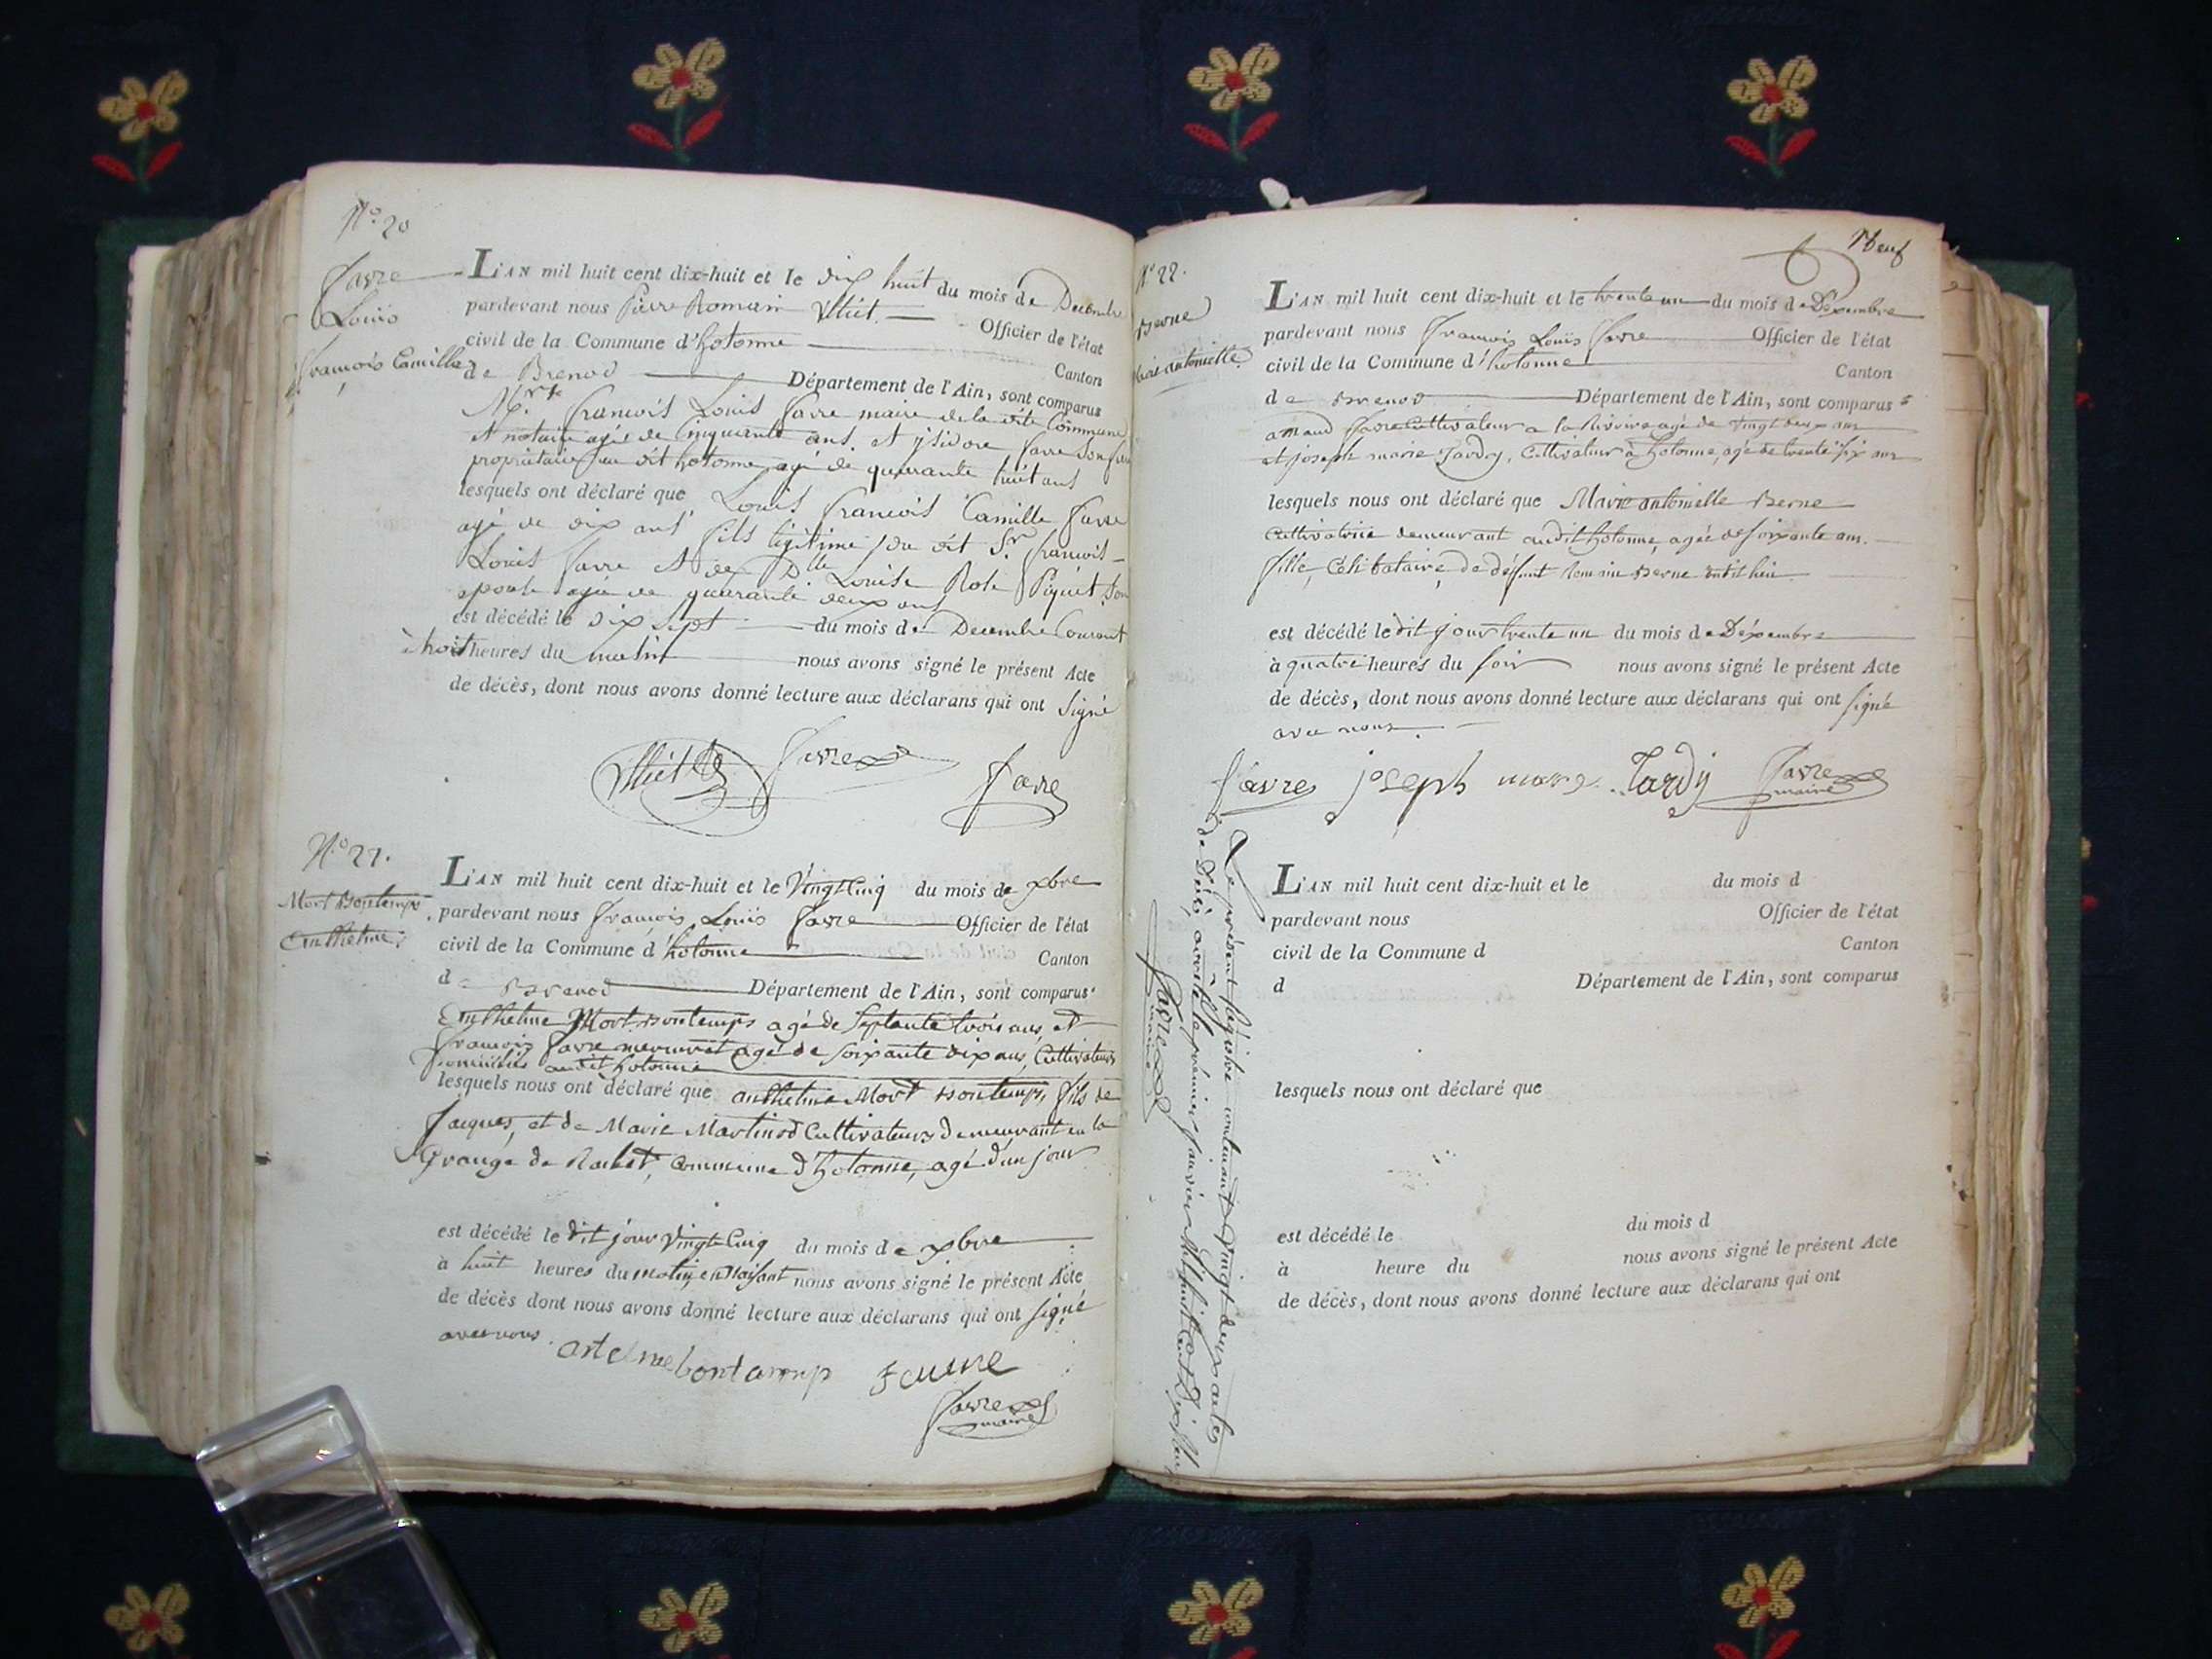 N.º 20
Favre
Louis
françois Camille
L'AN mil huit cent dix-huit et le dix huit du mois de Decembre
pardevant nous Pierre Romain Officier de l'état
civil de la Commune d'hotonne Canton
de Brenod Département de l'Ain, sont comparus
francois Louis favre maire de la dite Commune
et notaire agé de Cinquante ans et ysidore favre son
propriétaire au dit hotonne agé de quarante huit ans
lesquels ont déclaré que Louis francois Camille favre
agé de dix ans fils légitime du dit Sr. francois
Louis favre et de Dlle Louise Rose Piquet Son
epouse agée de quarante deux ans
est décédé le dix sept du mois de Decembre Courant
à huit heures du matin nous avons signé le présent Acte
de décès, dont nous avons donné lecture aux déclarans qui ont signé
favre
favre
N.º 21.
Mort Bontemps
Anthelme
L'AN mil huit cent dix-huit et le Vingt Cinq du mois de xbre
pardevant nous françois Louis favre Officier de l'état
civil de la Commune d'hotonne Canton
de Brenod Département de l'Ain, sont comparus
Anthelme Mort Bontemps agé de Septante trois ans, et
francois favre agé de soixante dix ans, Cultivateurs
Domiciliés audit hotonne
lesquels nous ont déclaré que anthelme Mort Bontemps, fils de
Jacques, et de Marie Martinod Cultivateurs demeurant en la
Grange de commune d'hotonne, agé d'un jour
est décédé le dit jour Vingt Cinq du mois de xbre
à huit heures du matin, en Naissant nous avons signé le présent Acte
de décès dont nous avons donné lecture aux déclarans qui ont signé
avec nous.
favre
maire
Neuf
N.º 22.
Berne
Marie antoniette
L'AN mil huit cent dix-huit et le trente un du mois de Décembre
pardevant nous françois Louis favre Officier de l'état
civil de la Commune d'hotonne Canton
de Brenod Département de l'Ain, sont comparus
amand favre Cultivateur a la Riviere agé de Vingt deux ans
et joseph marie Tardy, Cultivateur à hotonne, agé de trente six ans
lesquels nous ont déclaré que Marie antoniette Berne
Cultivatrice demeurant audit hotonne, agée de soixante ans.
fille, Célibataire, de défunt Berne dudit lieu
est décédé le dit jour trente un du mois de Décembre
à quatre heures du soir nous avons signé le présent Acte
de décès, dont nous avons donné lecture aux déclarans qui ont signé
avec nous.
favre joseph marie Tardy favre
maire
Le présent Registre contenant Vingt deux actes
de Décès, arrêté le premier janvier Mil huit Cent Dix Neuf
favre
maire
L'AN mil huit cent dix-huit et le du mois d
pardevant nous Officier de l'état
civil de la Commune d Canton
d Département de l'Ain, sont comparus
lesquels nous ont déclaré que
est décédé le du mois d
à heure du nous avons signé le présent Acte
de décès, dont nous avons donné lecture aux déclarans qui ont